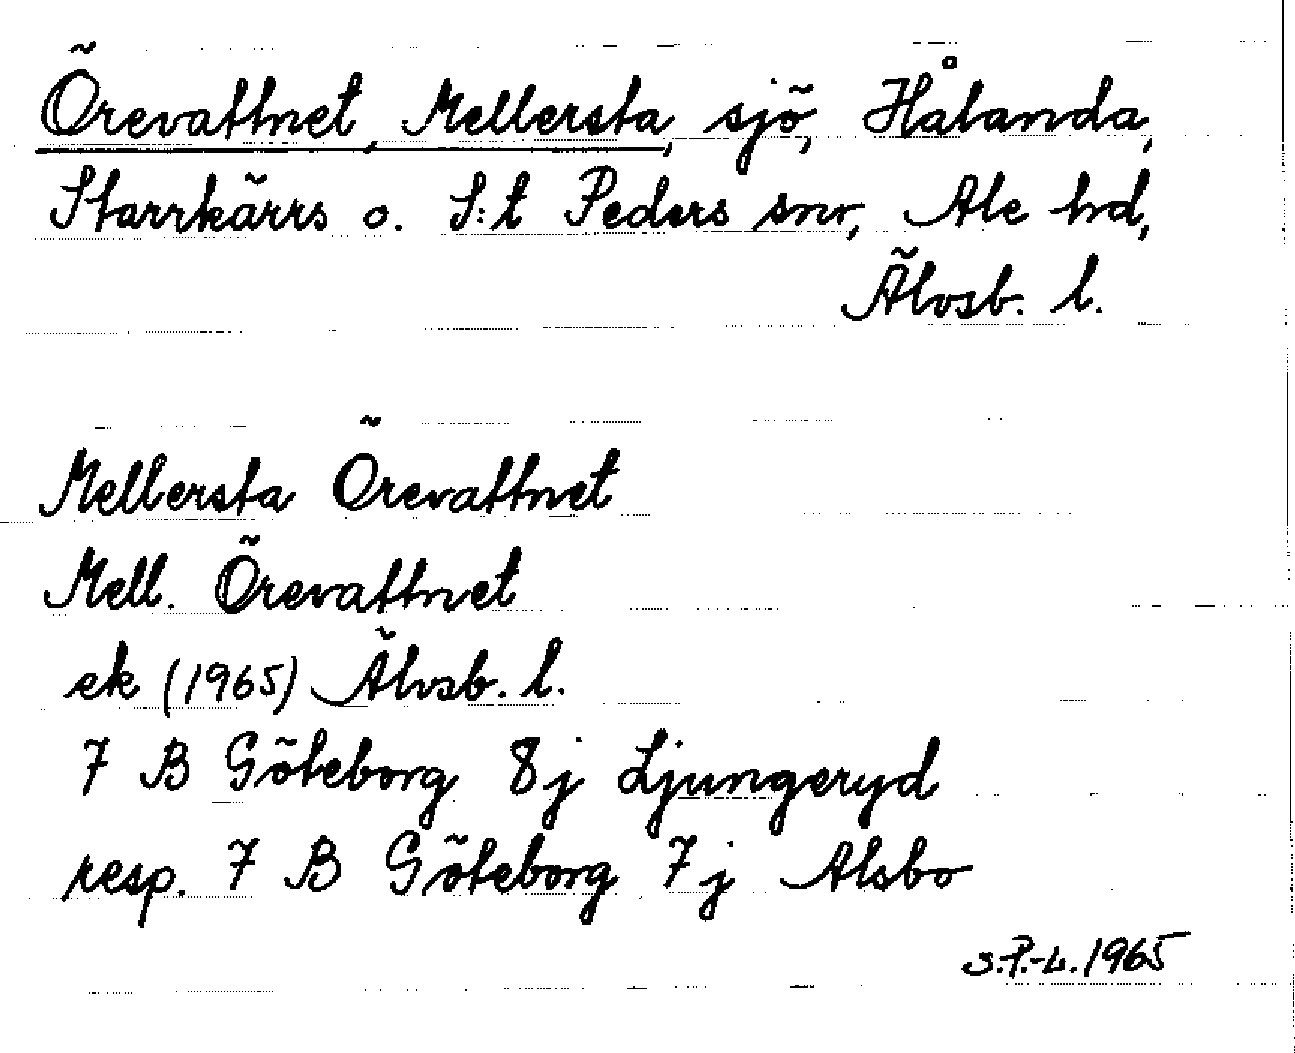 Örevattnet, Mellersta, sjö, Hålanda,
Starrkärrs o. S:t Peders snr, Ale hd,
Älvsb. l.
Mellersta Örevattnet
Mell. Örevattnet
ek (1965) Älvsb. l.
7 B Göteborg 8j Ljungeryd
resp. 7 B Göteborg 7j Alsbo
S.P.-L. 1965